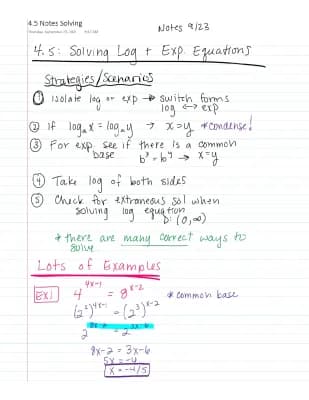 4.5 Notes Solving
Notes 9/23
4.5: Solving Log + Exp. Equations
Strategies/Scenarios
① isolate log or exp → switch forms
log ↔ exp
② If logₐx = logₐy → x=y *condense!
③ For exp, see if there is a common
base bˣ = bʸ → x=y
④ Take log of both sides
⑤ Check for extraneous sol when
solving log equation
D: (0,∞)
* there are many correct ways to
solve
Lots of Examples
Ex1 4^(4x-1) = 8^(x-2) * common base
(2²)^(4x-1) = (2³)^(x-2)
2^(8x-2) = 2^(3x-6)
8x-2 = 3x-6
5x = -4
x = -4/5